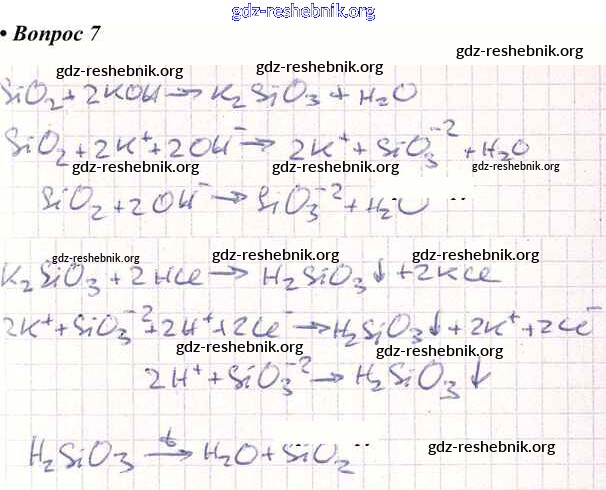 gdz-reshebnik.org
• Вопрос 7
gdz-reshebnik.org
gdz-reshebnik.org gdz-reshebnik.org
SiO2 + 2KOH → K2SiO3 + H2O
SiO2 + 2K⁺ + 2OH⁻ → 2K⁺ + SiO3⁻² + H2O
gdz-reshebnik.org gdz-reshebnik.org gdz-reshebnik.org
SiO2 + 2OH⁻ → SiO3⁻² + H2O
gdz-reshebnik.org gdz-reshebnik.org gdz-reshebnik.org
K2SiO3 + 2HCl → H2SiO3↓ + 2KCl
2K⁺ + SiO3⁻² + 2H⁺ + 2Cl⁻ → H2SiO3↓ + 2K⁺ + 2Cl⁻
gdz-reshebnik.org gdz-reshebnik.org
2H⁺ + SiO3⁻² → H2SiO3↓
gdz-reshebnik.org
H2SiO3 →t H2O + SiO2